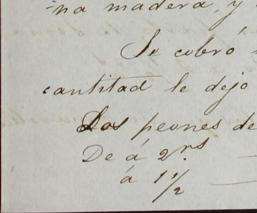 na madera, y
Se cobró
cantidad le dejo
Los peones de
De á 2 rs
á 1 1/2